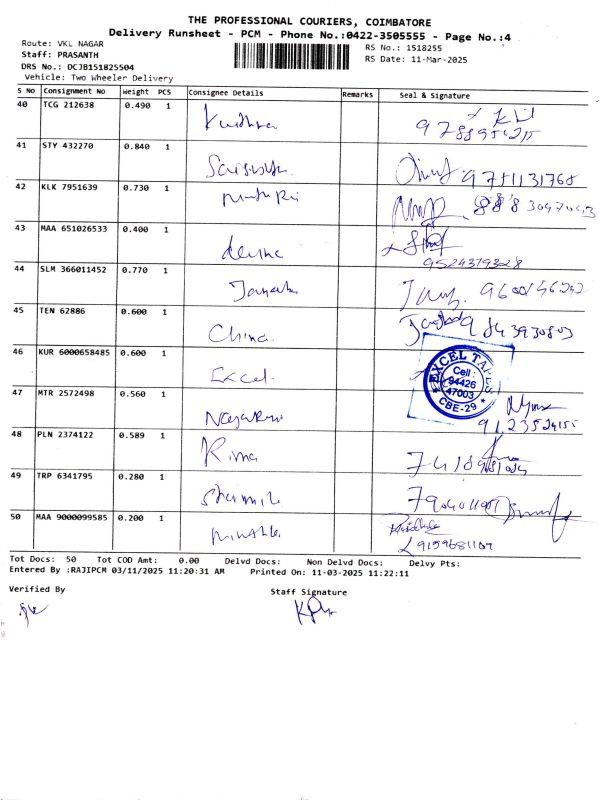 THE PROFESSIONAL COURIERS, COIMBATORE
Delivery Runsheet - PCM - Phone No.:0422-3505555 - Page No.:4
Route: VKL NAGAR
RS No.: 1518255
Staff: PRASANTH
RS Date: 11-Mar-2025
DRS No.: DCJB151825504
Vehicle: Two Wheeler Delivery
S No Consignment No Weight PCS Consignee Details Remarks Seal & Signature
40 TCG 212638 0.490 1
41 STY 432270 0.840 1 9751131768
42 KLK 7951639 0.730 1
43 MAA 651026533 0.400 1
9524379328
44 SLM 366011452 0.770 1
45 TEN 62886 0.600 1 China
46 KUR 6000658485 0.600 1 Excel
EXCEL TAPES
Cell :
94426
47003
CBE-29
47 MTR 2572498 0.560 1
9123524155
48 PLN 2374122 0.589 1 Rima
49 TRP 6341795 0.280 1
50 MAA 9000099585 0.200 1
9159681109
Tot Docs: 50 Tot COD Amt: 0.00 Delvd Docs: Non Delvd Docs: Delvy Pts:
Entered By :RAJIPCM 03/11/2025 11:20:31 AM Printed On: 11-03-2025 11:22:11
Verified By
Staff Signature